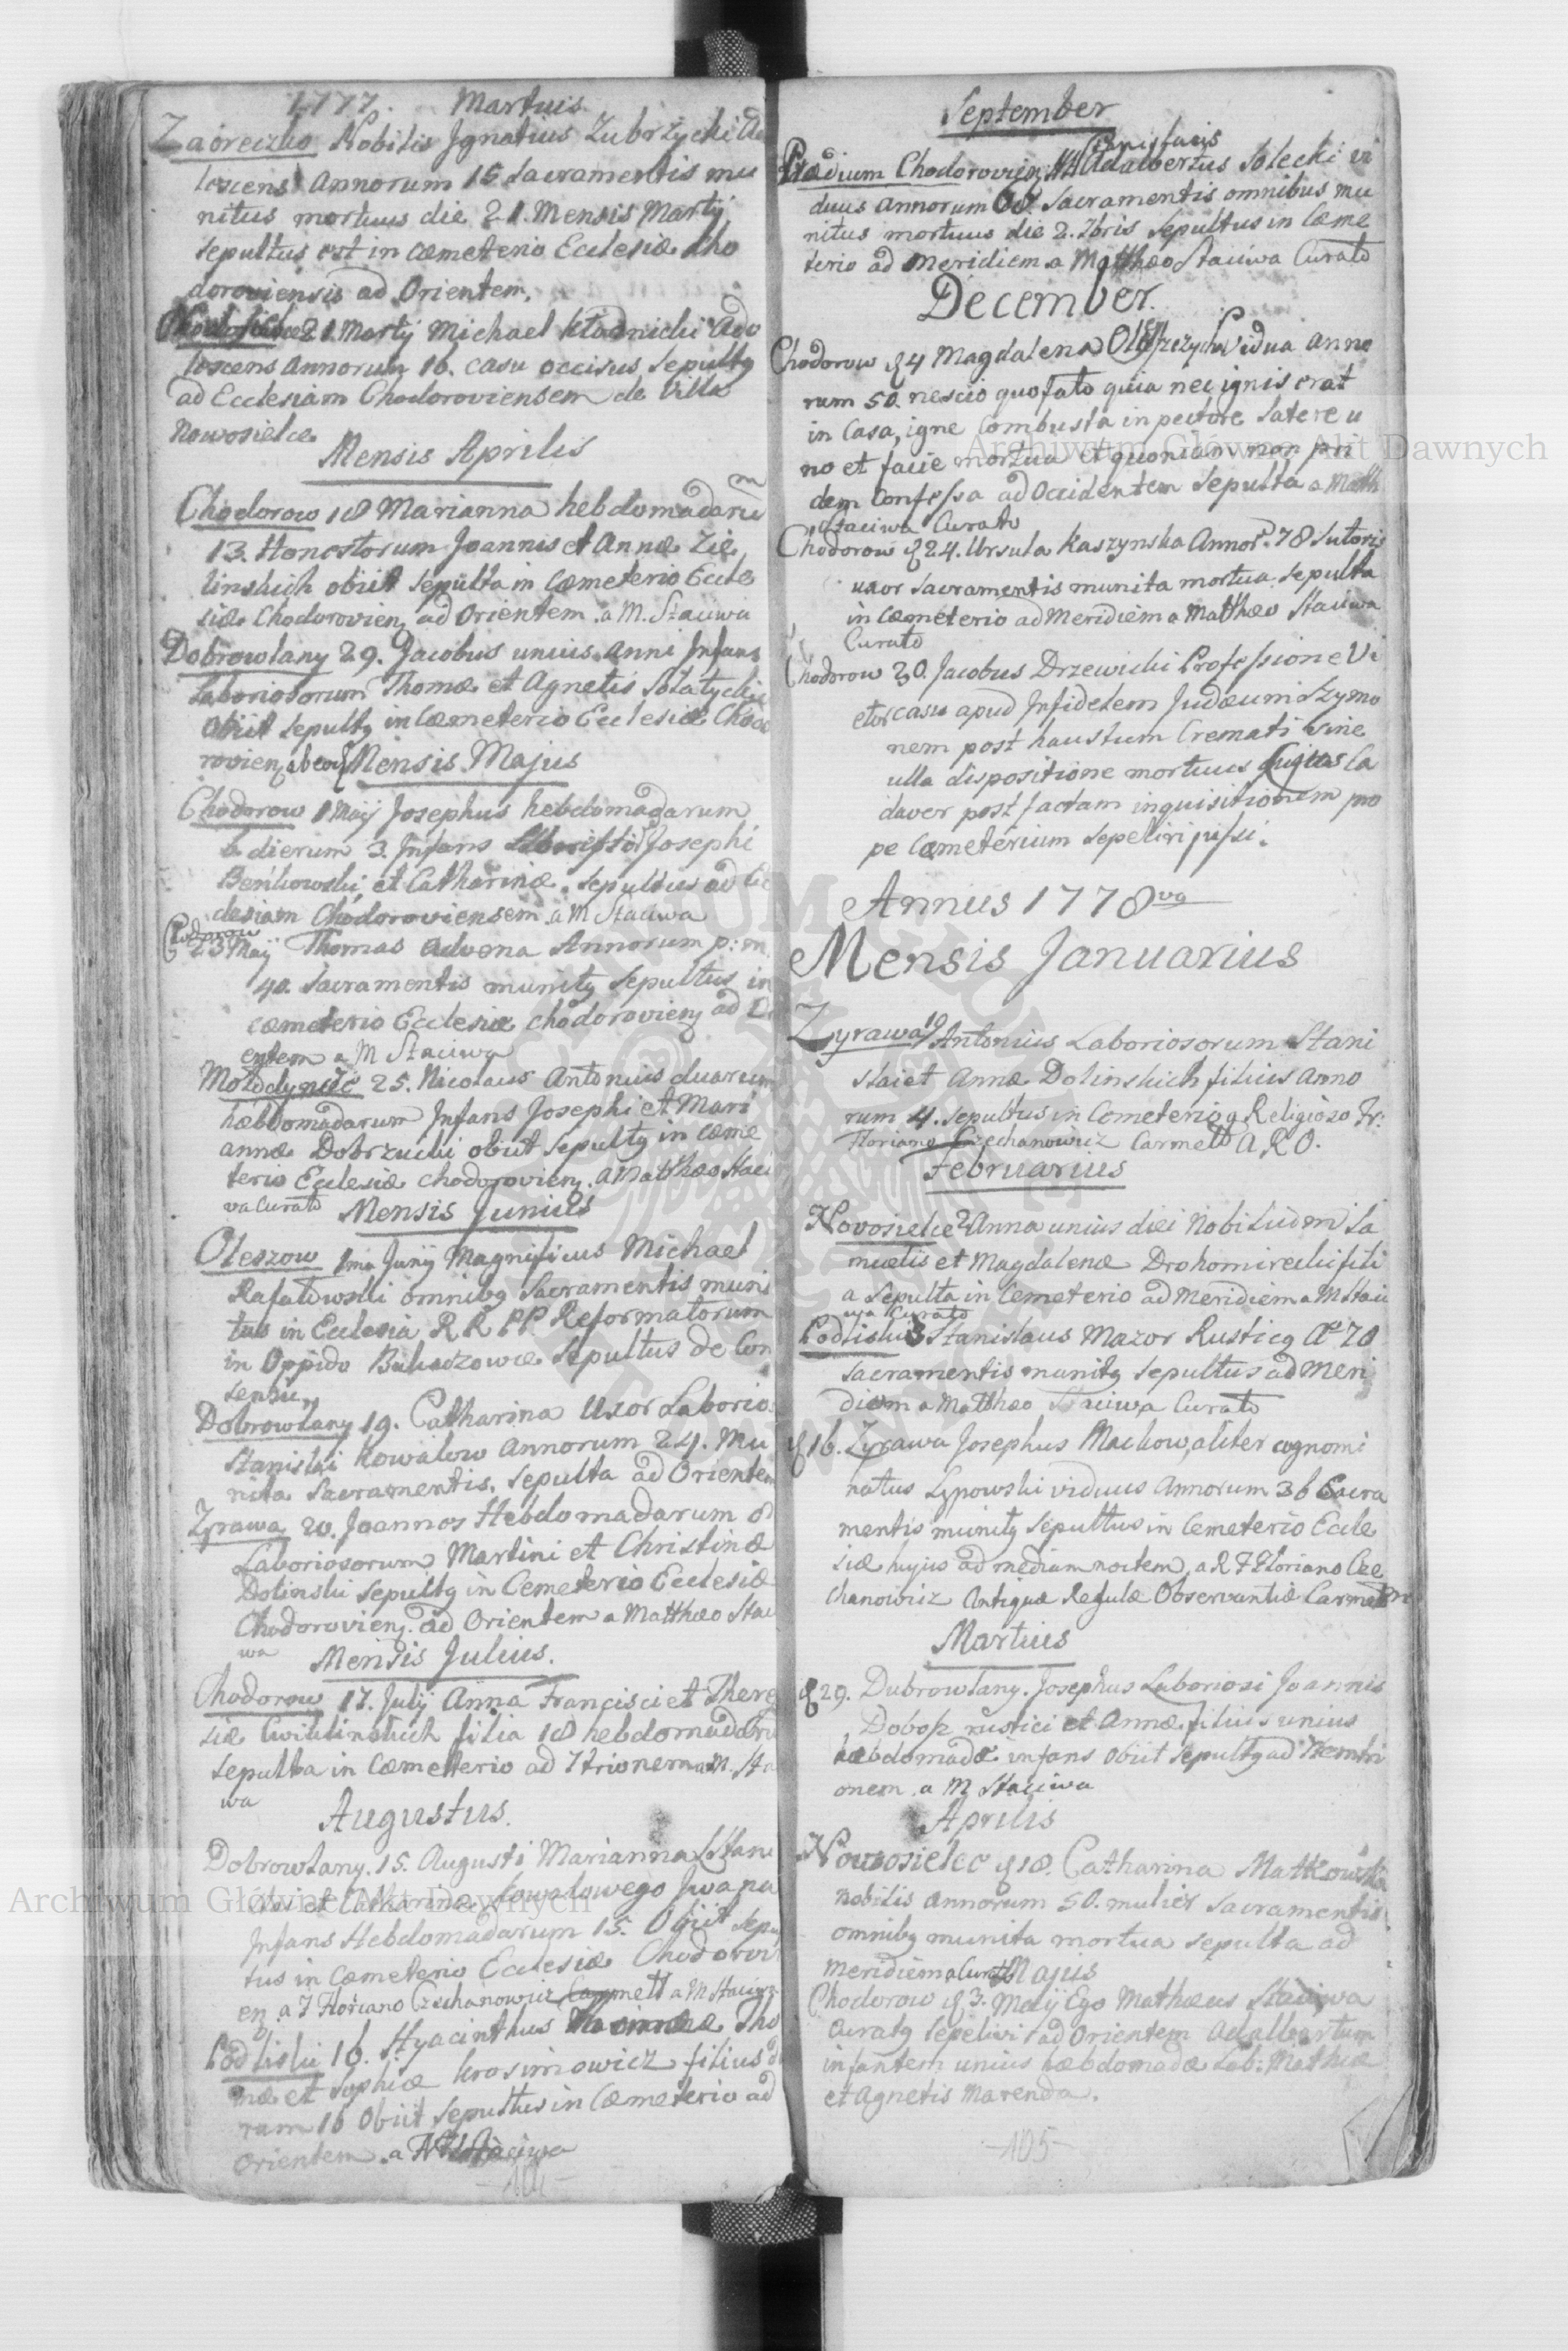 1777. Martius
Zaoreczko Nobilis Jgnatius Zubrzycki Ado
lescens Annorum 15 Sacramentis mu
nitus mortuus die 21. Mensis Martij
sepultus est in cæmeterio Ecclesiæ Cho
doroviensis ad Orientem.
21. Martij Michael Kłodnicki Ado
lescens Annorum 16. casu occisus sepultq
ad Ecclesiam Chodoroviensem de Villa
Nowosielce
Mensis Aprilis
Chodorow 18 Marianna hebdomadaru
m
13. Honestorum Joannis et Annæ Zie
linskich obiit sepulta in Cæmeterio Eccle
siæ Chodorovien ad Orientem a M. Staciwa
Dobrowlany 29. Jacobus unius Anni Jnfans
Laboriosorum Thomæ et Agnetis
obiit sepultq in Cæmeterio Ecclesiæ Chodo
rovien ab eod Mensis Majus
Chodorow 1 Maij Josephus hebdomadarum
dierum 3. Jnfans Josephi
Beńkowski et Catharinæ sepultus ad Ec
clesiam Chodoroviensem a M Staciwa
Chodorow
23 Maij Thomas advena Annorum p: m
40. Sacramentis munitq sepultus in
cæmeterio Ecclesiæ chodorovien ad Ori
entem a M Staciwa
Mołodynice 25. Nicolaus Antonius duarum
hæbdomadarum Jnfans Josephi et Mari
annæ Dobrzucki obiit sepultq in Cæme
terio Ecclesiæ chodorovien. a Matthæo Staci
va Curato Mensis Junius
Oleszow 1ma Junij Magnificus Michael
Rafałowski omnibq Sacramentis muni
tus in Ecclesia RR PP Reformatorum
in Oppido sepultus de Con
sensu
Dobrowlany 19. Catharina Uxor Laborio
Stanislai Kowalow Annorum 24. Mu
nita Sacramentis. sepulta ad Orientem
Zyrawa 20. Joannes Hebdomadarum 8
Laboriosorum Martini et Christinæ
Dolinski sepultq in Cemeterio Ecclesiæ
Chodorovien. ad Orientem a Matthæo Staci
wa Mensis Julius.
Chodorow 17. Julij Anna Francisci et There
siæ Cwiklinskich filia 18 hebdomadaru
sepulta in Cæmeterio ad 7trionem a M. Sta
wa
Augustus.
Dobrowlany. 15. Augusti Marianna Stani
slai et Catharinæ Kowalowego Jwana
Jnfans Hebdomadarum 15. Obiit Sepul
tus in Cæmeterio Ecclesiæ Chodorovi
en a F Floriano Czechanowicz Carmelit a M Staciwa
Podliski 16. Hyacinthus Tho
mæ et Sophiæ Krosimowicz filius d
rum 16 Obiit sepultus in Cæmeterio ad
Orientem. a M Staciwa
September
Bonifacius
Prædium Chodorovien Adalbertus Solecki vi
duus Annorum 60. Sacramentis omnibus mu
nitus mortuus die 2. 7bris sepultus in Cæme
terio ad Meridiem a Matthæo Staciwa Curato
December.
Chodorow 4 Magdalena Vidua Anno
rum 50. nescio quo fato quia nec ignis erat
in Casa, igne Combusta in pectore latere u
no et facie mortua et quoniam non pri
dem Confessa ad Occidentem Sepulta a Math
Staciwa Curato
Chodorow 24. Ursula Kaszynska Annor. 78 Sutoris
uxor Sacramentis munita mortua sepulta
in Cæmeterio ad Meridiem a Matthæo Staciwa
Curato
Chodorow 30. Jacobus Drzewicki Professione Vi
etor casu apud Jnfidelem Judæum Szymo
nem post haustum Cremati sine
ulla dispositione mortuus Cujus Ca
daver post factam inquisitionem pro
pe Cæmeterium sepeliri jussi.
Annus 1778va
Mensis Januarius
Zyrawa 19 Antonius Laboriosorum Stani
slai et Annæ Dolinskich filius Anno
rum 4. sepultus in Cemeterio a Religioso Fr:
Floriano Czechanowicz Carmelit A R O.
Februarius
Novosielce 2 Anna unius diei Nobilium Sa
muelis et Magdalenæ Drohomirecki fili
a sepulta in Cemeterio ad Meridiem a M Staci
wa Curato
Podliski 3 Stanislaus Mazor Rusticq A 70
Sacramentis munitq sepultus ad Meri
diem a Matthæo Staciwa Curato
16. Zyrawa Josephus Mackow, aliter cognomi
natus Lypowski viduus Annorum 36 Sacra
mentis munitq sepultus in Cemeterio Eccle
siæ hujus ad mediam noctem, a R F Floriano Cze
chanowicz Antiquæ Regulæ Observantiæ Carmelit
Martius
29. Dubrowlany. Josephus Laboriosi Joannis
Dobosz rustici et Annæ filius unius
hæbdomadæ infans obiit sepultq ad 7temtri
onem. a M Staciwa
Aprilis
Novosielce 18. Catharina Małkowska
nobilis annorum 50. mulier Sacramentis
omnibq munita mortua sepulta ad
meridiem a Curato Majus
Chodorow 3. Maij Ego Mathæus Staciwa
Curatq sepelivi ad Orientem Adalbertum
infantem unius hæbdomadæ Lab: Mathiæ
et Agnetis Marenda.
-105-
Archiwum Główne Akt Dawnych
Archiwum Główne Akt Dawnych